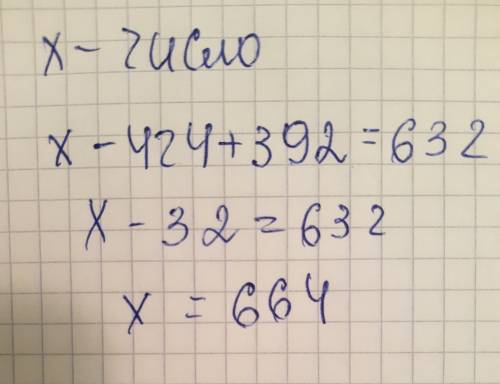 x - число
x - 424 + 392 = 632
x - 32 = 632
x = 664